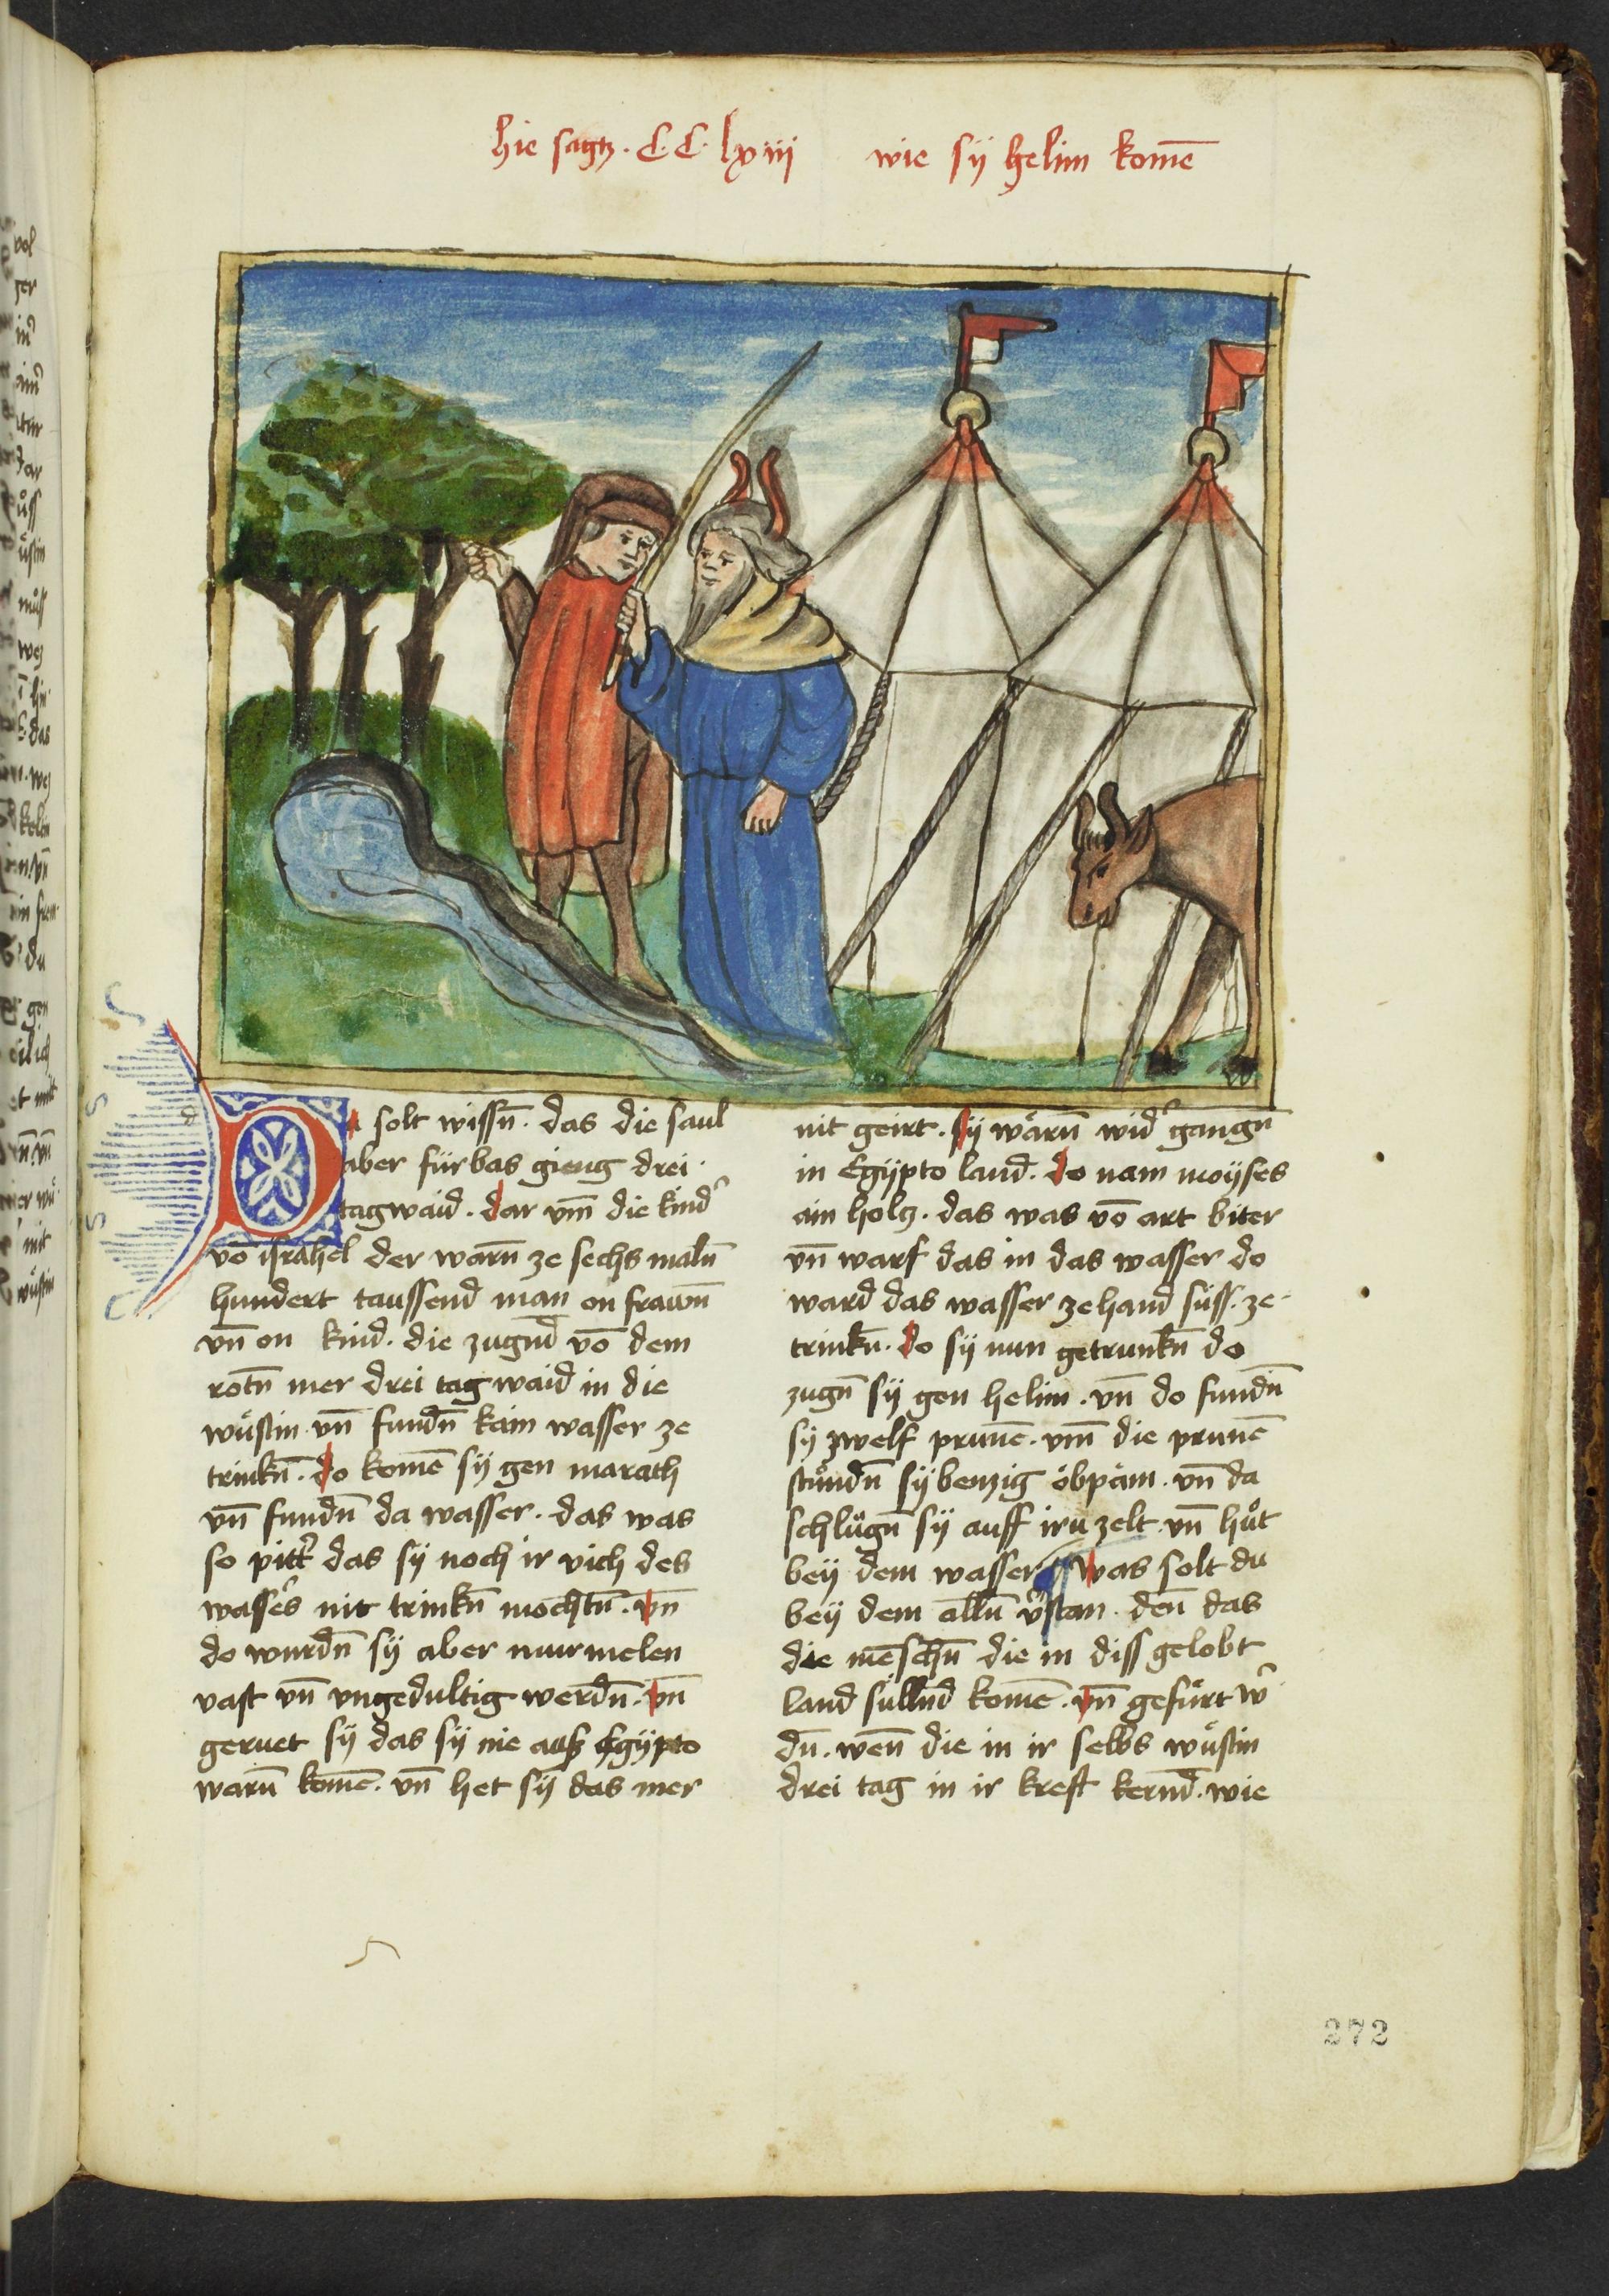 hie sagtz · C · C · lxviij wie sÿ helim komē
Du solt wissn̄ · das die saul
aber fürbas gieng drei ·
tagwaid · dar vm̄ die kind᾽
vō israhel der warn̄ ze sechs maln̄
hundert taussend man on frawn̄
vn̄ on kind · die zugnd̄ vō dem
rotn̄ mer drei tag waid in die
wüstin · vn̄ fundn̄ kain wasser ze
trinkn̄ · do komē sÿ gen marath
vn̄ fundn̄ da wasser · das was
so pitt᾽ das sÿ noch ir vich des
wass᾽s nit trinkn̄ mochtn̄ · vn̄
do wurdn̄ sÿ aber murmelen
vast vn̄ vngedultig werdn̄ · vn̄
geruet sÿ das sÿ nie auß Egÿpto
warn̄ komē · vn̄ het sÿ das mer
nit geirt · sÿ wärn̄ wid᾽ gangn̄
in Egÿpto land · do nam moÿses
ain holtz · das was vō art biter
vn̄ warf das in das wasser do
ward das wasser zehand süss · ze ·
trinkn̄ · do sÿ nun getrunkn̄ do
zugn̄ sÿ gen helim · vn̄ do fundn̄
sÿ zwelf prunē · vm̄ die prunē
stůndn̄ sÿbenzig öbpäm · vn̄ da
schlůgn̄ sÿ auff irů zelt · vn̄ hůt
beÿ dem wasser Was solt du
beÿ dem alln̄ v᾽stan · den̄ das
die mēschn̄ die in diss gelobt
land sülln̄d komē · vn̄ gefürt w᾽
dn̄ · wen̄ die in ir selbs wüstin
drei tag in ir kreft kernd̄ · wie
272